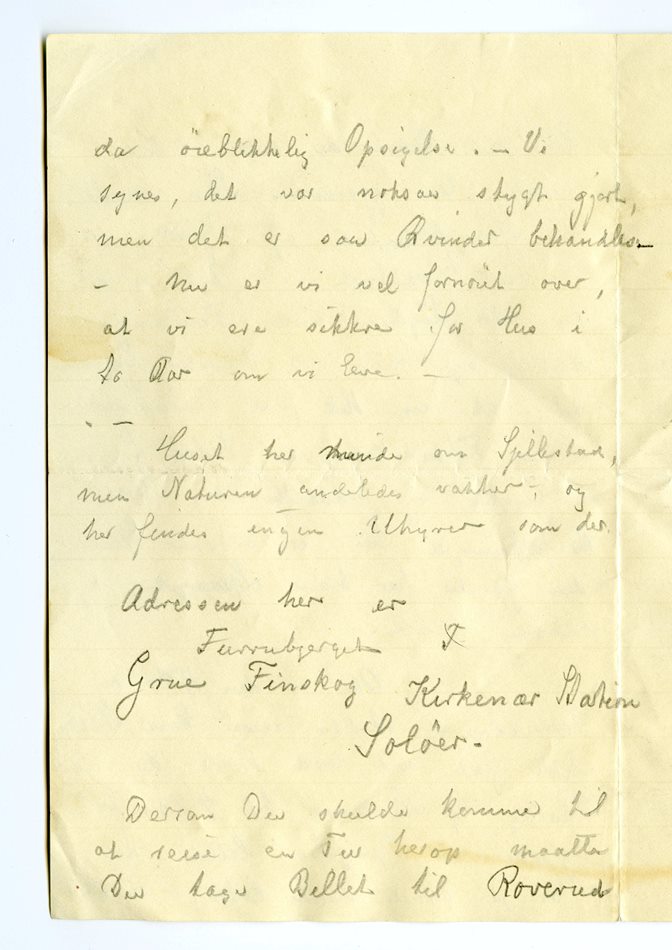 da öieblikkelig Opsigelse. – Vi
synes, det var noksaa stygt gjort,
men det er saa Kvinder behandles –
– Nu er vi vel fornöiet over,
at vi ere sikkre for Hus i
to Aar om vi leve. –
. –
Huset her minde om Spillestad,
men Naturen anderledes vakker –, og
her findes ingen Uhyrer som der.
Adressen her er
Furrubjerget
Grue Finskog Kirkenær Station
Solöer –
Dersom Du skulde komme til
at reise en Tur herop maatte
Du tage Billet til Roverud